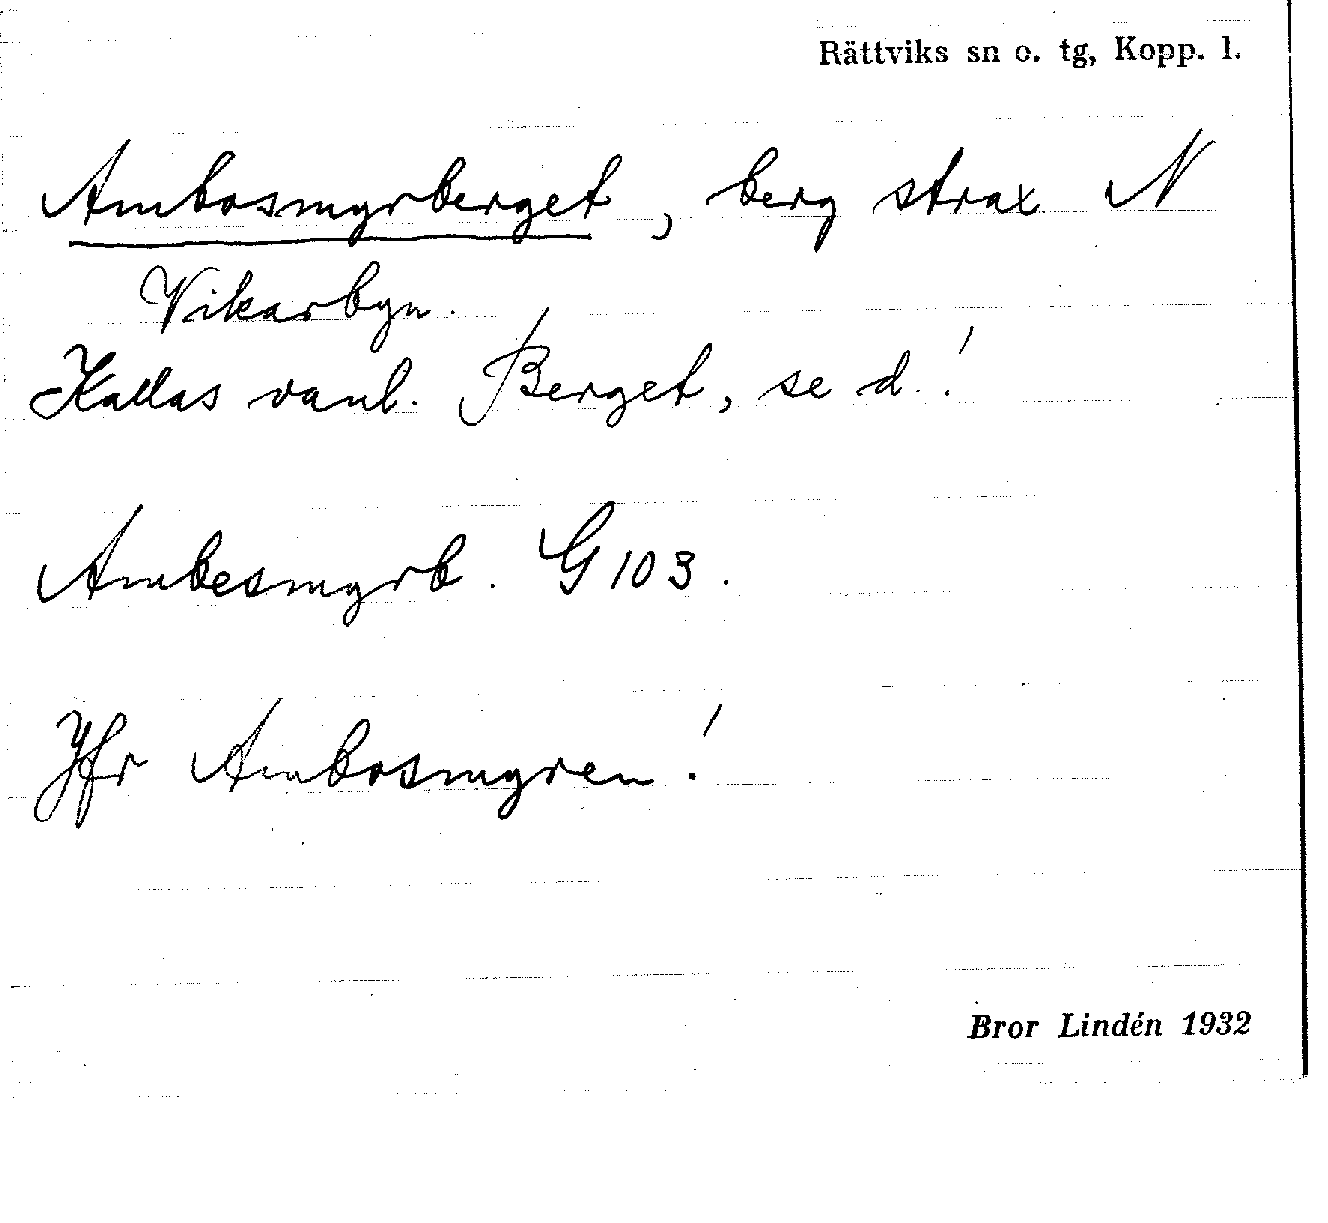 Rättviks sn o. tg, Kopp. l.
Ambosmyrberget, berg strax N
Vikarbyn.
Kallas vanl. Berget, se d.!
Ambesmyrb. G103.
Jfr Ambosmyren!
Bror Lindén 1932